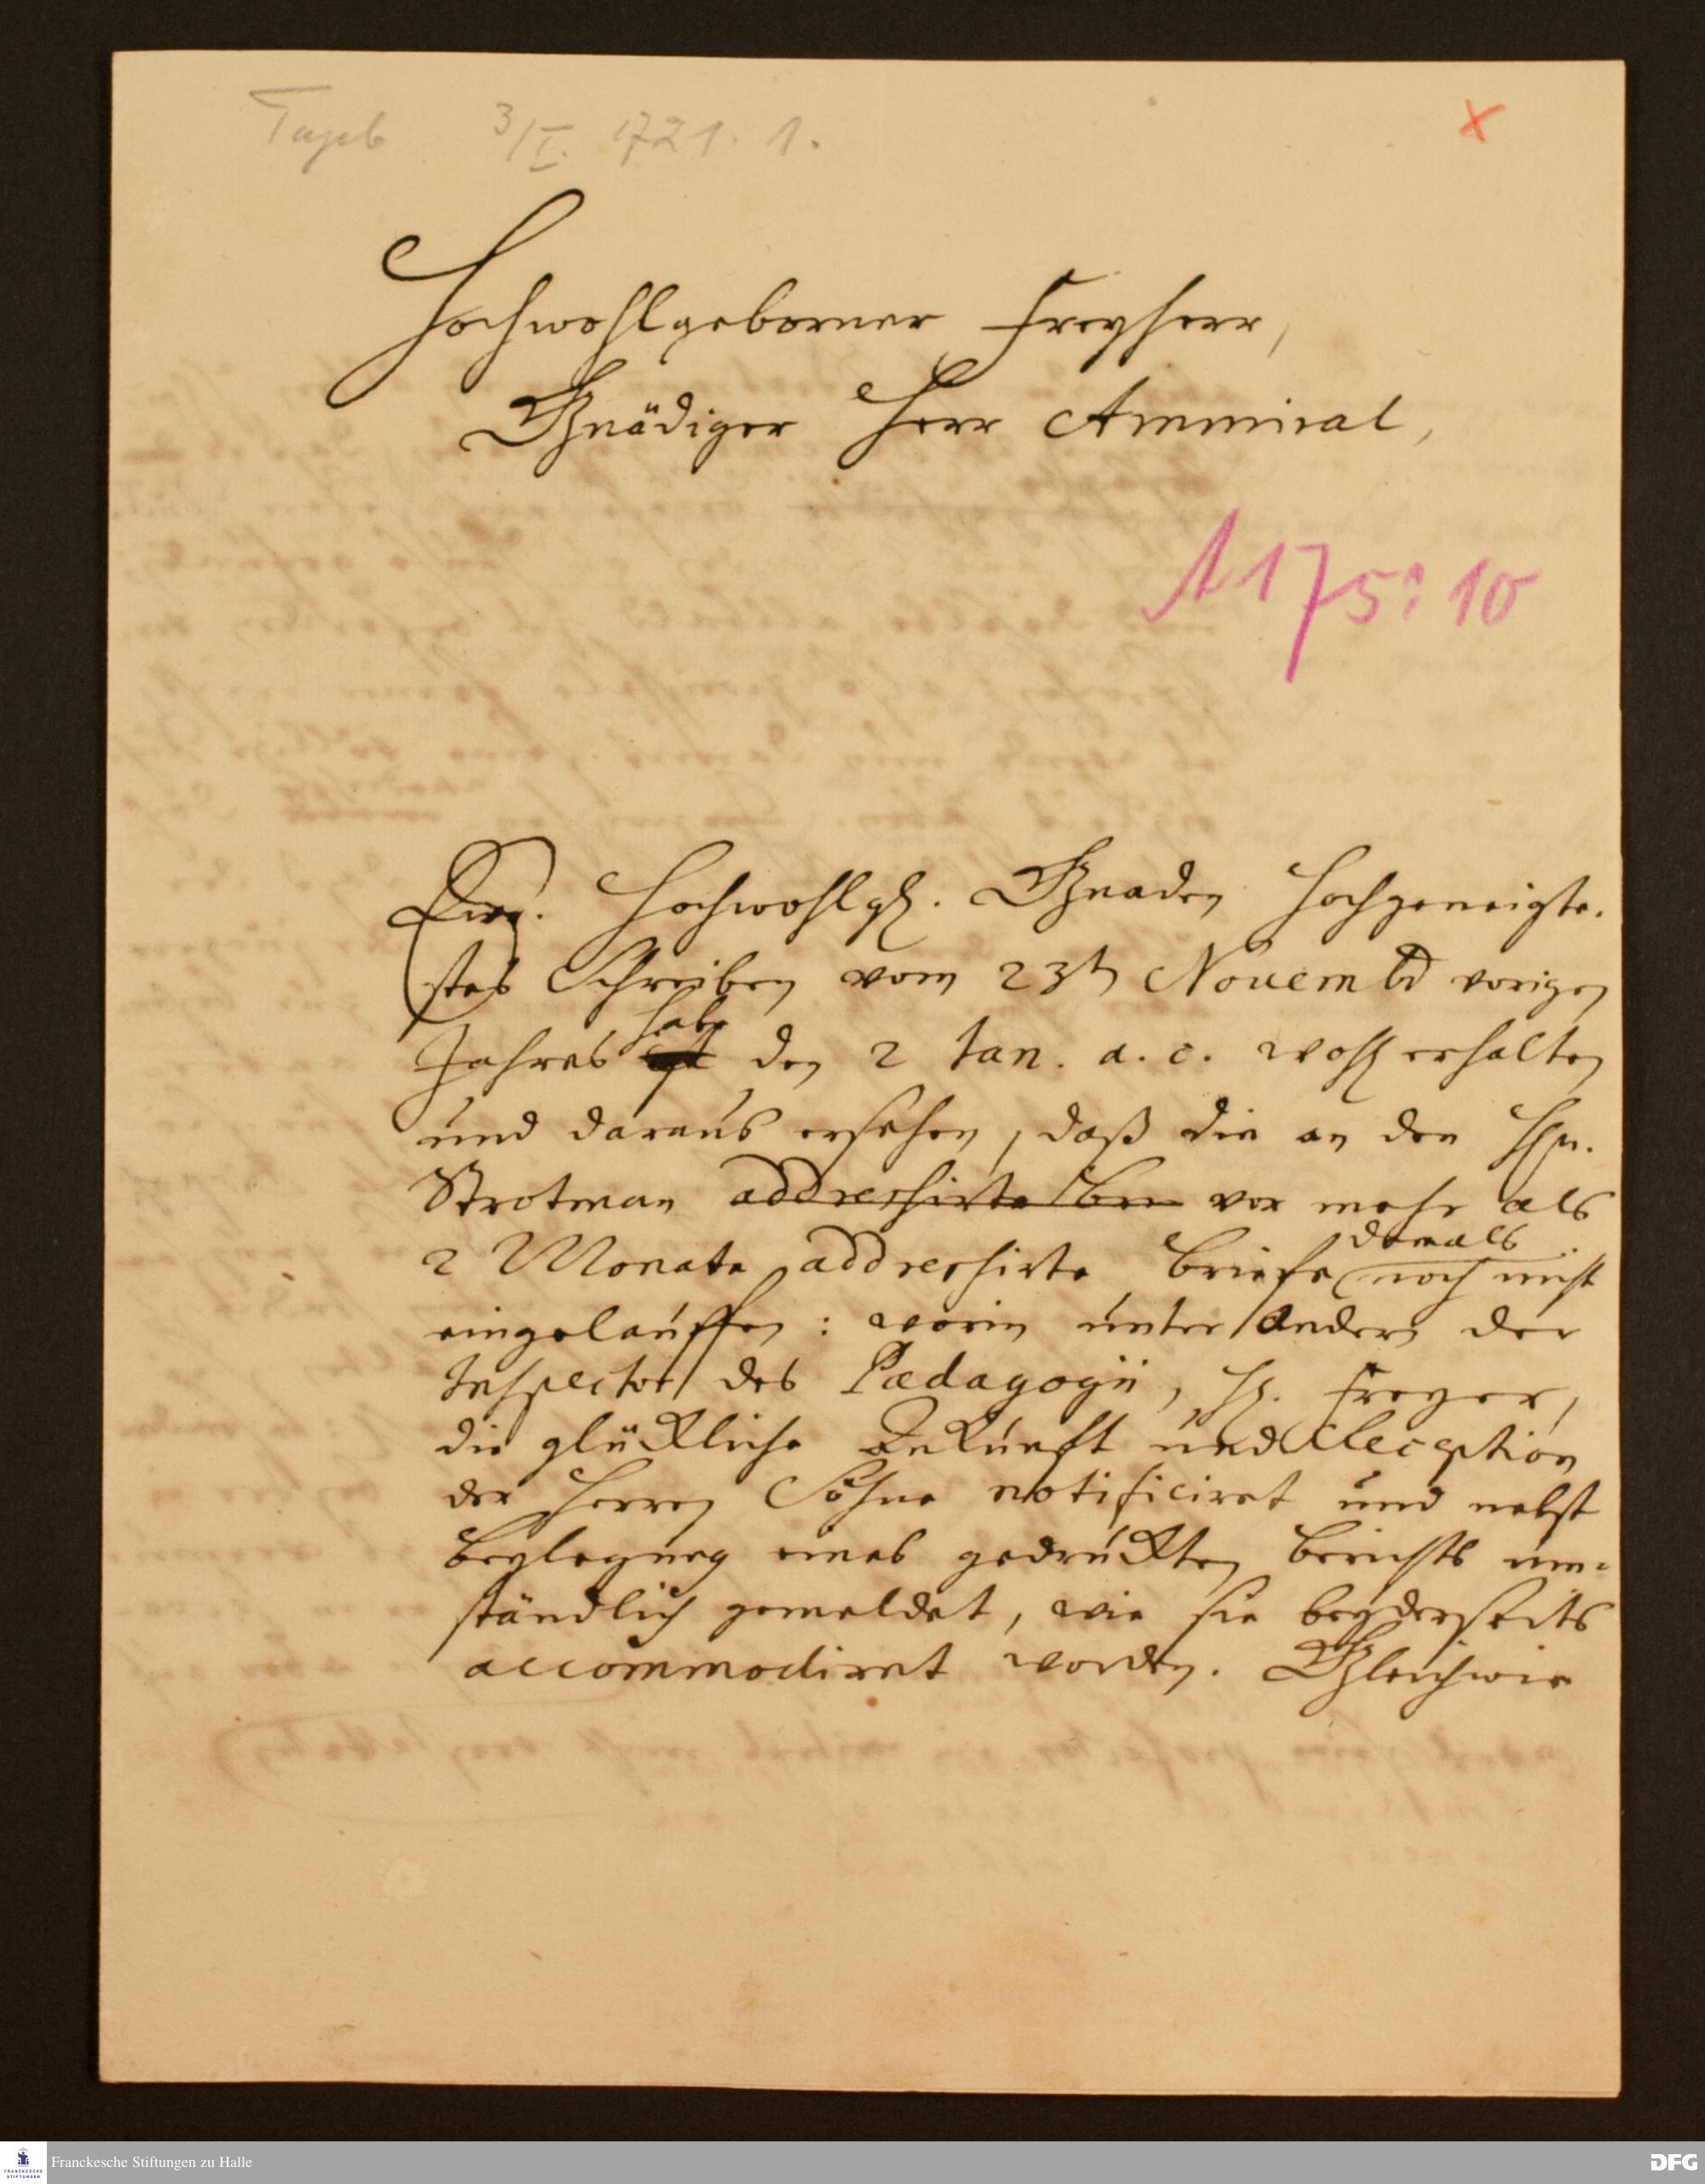 Tageb 3/I. 1721. 1.
Hochwohlgeborner Freyherr,
Gnädiger Herr Ammiral,
A 175: 10
Ew. Hochwohlgb. Gnaden Hochgeneigte-
stes Schreiben vom 23t Novembr vorigen
habe
Jahres den 2 Jan. a. c. wohl erhalten
und daraus ersehen, daß die an den Hn.
Strotman addressirte vor mehr als
damals
2 Monate addressirte Briefe noch nicht
eingelauffen: worin unter andern der
Inspector des Pædagogii, H. Freyer,
die glückliche Ankunft und Reception
der Herren Söhne notificiret und nebst
Beylegung eines gedruckten Berichts um-
ständlich gemeldet, wie sie beyderseits
accommodiret worden. Gleichwie
Franckesche Stiftungen zu Halle
DFG